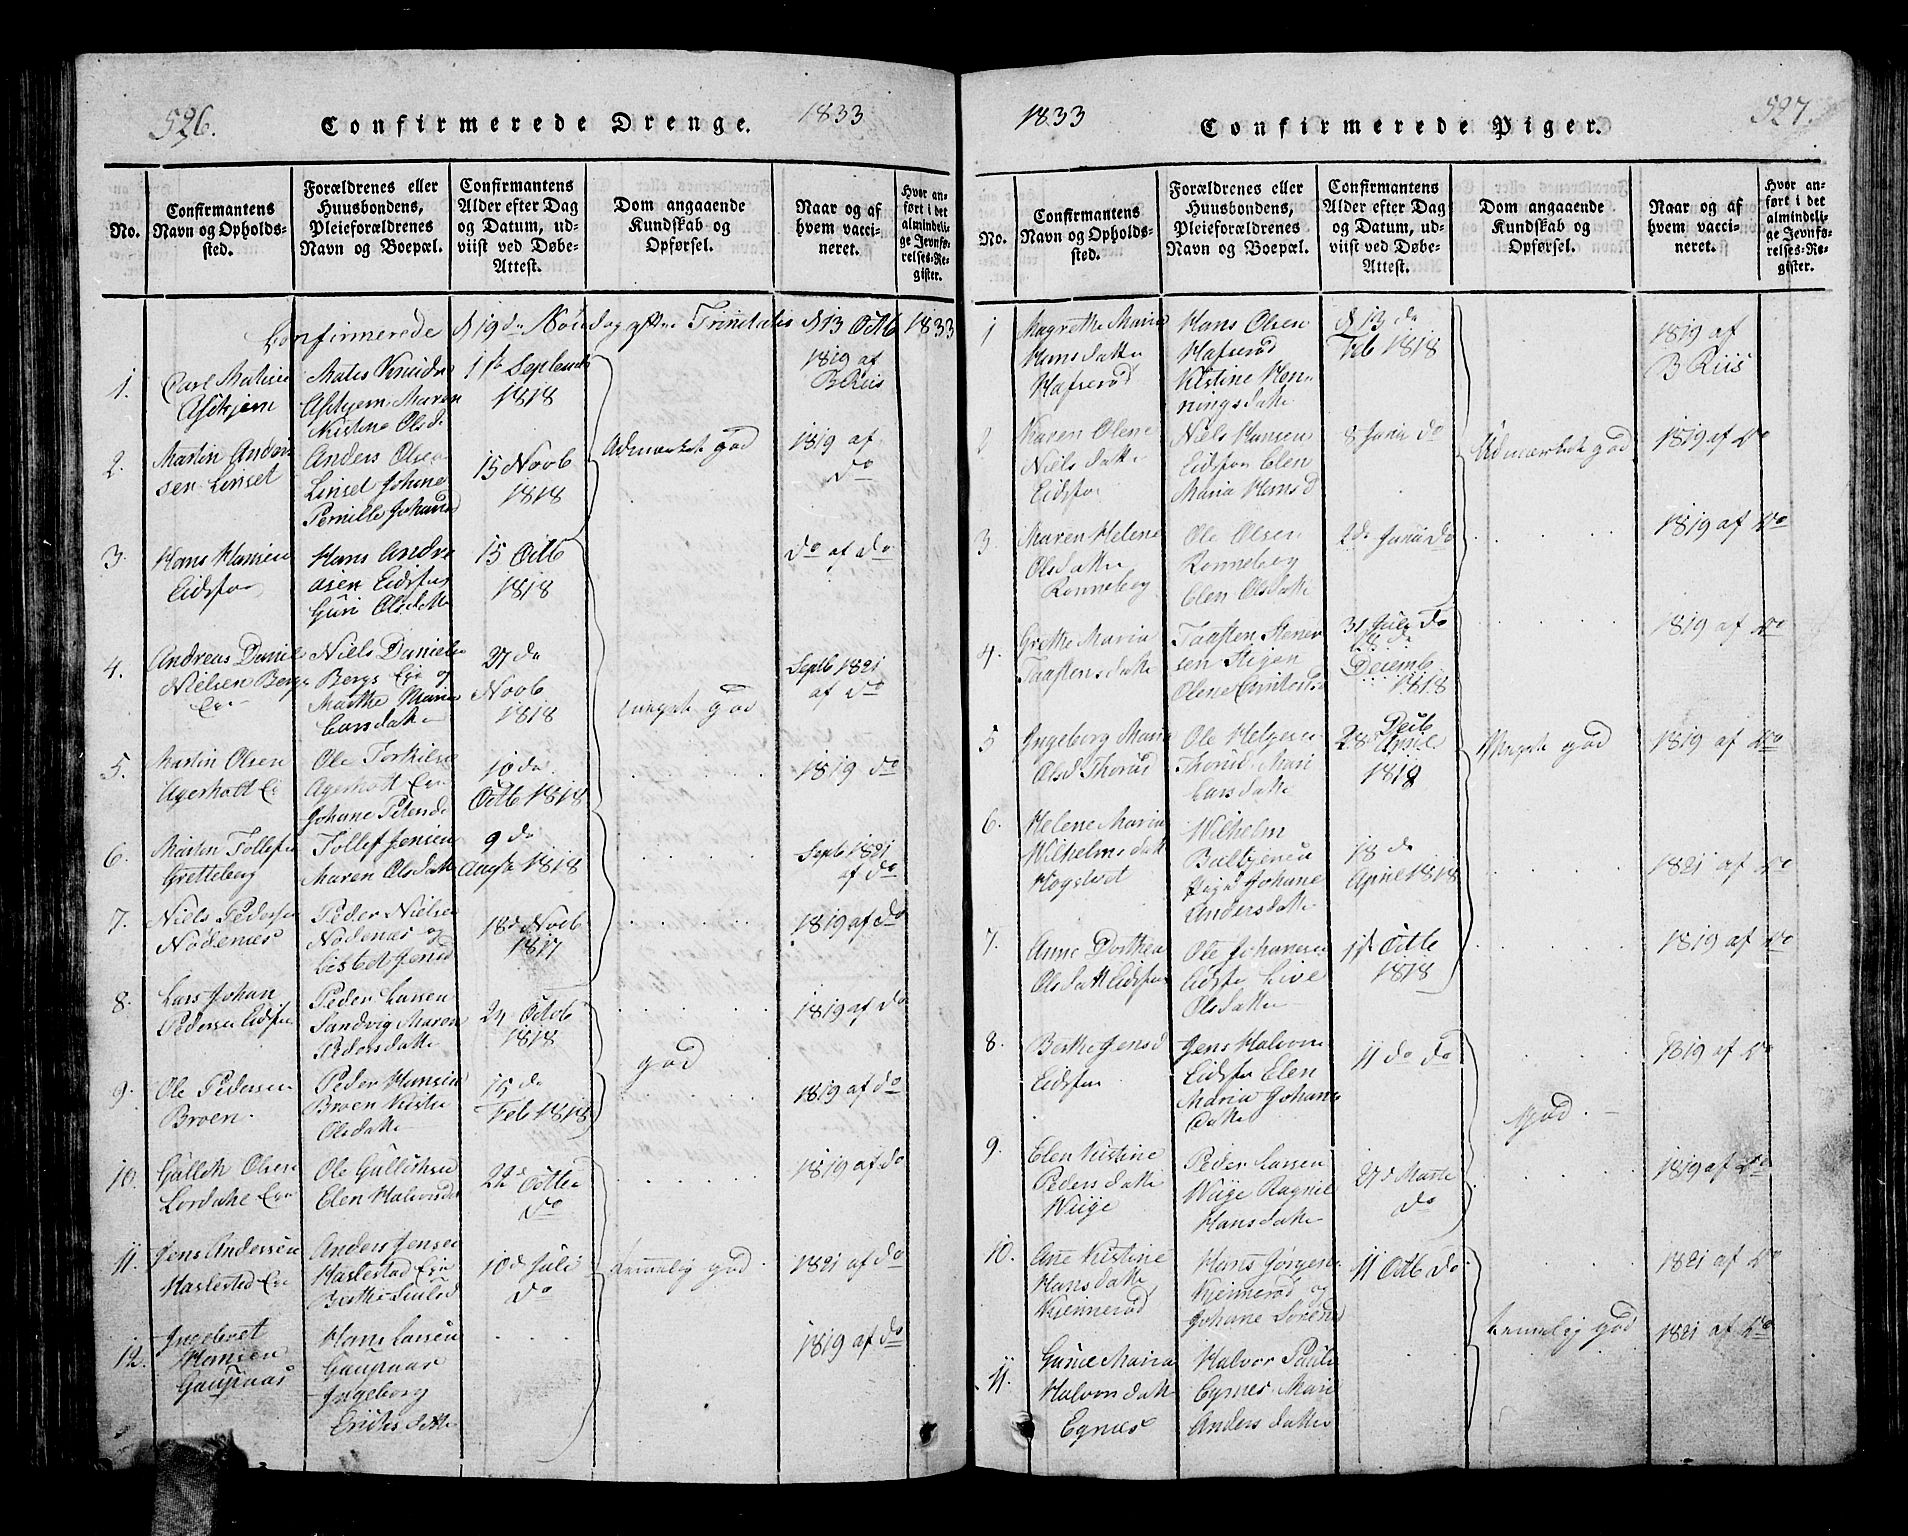 526.
Confirmerede Drenge.
1833
No.
Confirmantens
Navn og Opholds-
sted.
Forældrenes eller
Huusbondens,
Pleieforældrenes
Navn og Boepæl.
Confirmantens
Alder efter Dag
og Datum, ud-
viist ved Døbe-
Attest.
Dom angaaende
Kundskab og
Opførsel.
Naar og af
hvem vacci-
neret.
Hvor an-
ført i det
almindeli-
ge Jevnfø-
relses-Re-
gister.
Confirmerede d 19de Søndag efter Trinitatis d 13 Octb 1833
1.
Carl Matisen
Askjem
Mates Knuds
Askjem Maren
Kistine Olsd
1ste Septemb
1818
1819 af
B Riis
2.
Martin Ander
sen Linset
Anders Olsen
Linset Johane
Pernille Johansd
15 Novb
1818
Udmærket god
1819 af
do
3.
Hans Hansen
Eidsfos
Hans Andre
asen Eidsfos
Guri Olsdatte
15 Octb
1818
do af do
4.
Andreas Daniel
Nielsen Bergs
Eie
Niels Daniels
Bergs Eie og
Marthe Maria
Larsdatte
27 de
Novb
1818
meget god
Septb 1821
af do
5.
Martin Olsen
Agerholt Ei
Ole Torkilse
Agerholt Eie
Johane Petersd
10 de
Octb 1818
1819 do
6.
Martin Tollefse
Gretteberg
Tollef Jensen
Maren Olsdatte
9 de
Augst 1818
Septb 1821
af do
7.
Niels Pederse
Nodenæs
Peder Nielse
Nodenæs og
Lisbet Jensd
18d Novb
1817
1819 af do
8.
Lars Johan
Pedersen Eidsfos
Peder Larsen
Sandvig Maren
Pedersdatte
24 Octb
1818
god
1819 af do
9.
Ole Pedersen
Broen.
Peder Hansen
Broen Kistie
Olsdatte
15 de
Feb 1818
1819 af do
10.
Gulleck Olsen
Lordahl Eie
Ole Gullichsen
Elen Halvorsd
22d Octb
do
1819 af do
11.
Jens Andersen
Haslestad Eie
Anders Jensen
Haslestad Eie
10d Juli
do
temmelig god
1821 af do
12.
Ingelvet
Hansen
Gaupnas
Hans Larsen
Gaupnas
Ingeborg
Ericks datte
1819 af do
1833
Confirmerede Piger.
527.
No.
Confirmantens
Navn og Opholds-
sted.
Forældrenes eller
Huusbondens,
Pleieforældrenes
Navn og Boepæl.
Confirmantens
Alder efter Dag
og Datum, ud-
viist ved Døbe-
Attest.
Dom angaaende
Kundskab og
Opførsel.
Naar og af
hvem vacci-
neret.
Hvor an-
ført i det
almindeli-
ge Jevnfø-
relses-Re-
gister.
1
Magrethe Maria
Hansdatte
Hafserød
Hans Olsen
Hafserød
Kistine Hen-
ningsdatte
d 13 de
Feb 1818
1819 af
B Riis
2
Karen Olene
Niels datte
Eidsfos
Niels Hansen
Eidsfos Elen
Maria Hansd
8 Janu do
Udmærket god
1819 af do
3.
Maren Helene
Olsdatte
Ronneberg
Ole Olsen
Ronneberg
Elen Olsdatte
2de Janu do
1819 af do
4.
Grethe Maria
Taastensdatte
Taasten Stener
sen Stigen
Olene
31 July do
Decemb
1818
1819 af do
5
Ingeborg Maria
Olsd Thorud
Ole Helgesen
Thorud Mari
Larsdatte
28 April
1818
Meget god
1819 af do
6.
Helene Maria
Wilhelms datt
Hogsevet
Wilhelm
Johane
Andersdatte
18 de
April 1818
1821 af do
7.
Anne Dorthea
Olsdatt Eidsfos
Ole Johanesen
Eidsfos Live
Olsdatte
1st Octb
1818
1819 af do
8.
Berthe Jensd
Eidsfos
Jens Halvors
Eidsfos Elen
Maria Johans
datte
11 do do
God.
1819 af do
9.
Elen Kistine
Peders datte
Wiige
Peder Larsen
Wiige Ragnil
Hansdatte
27d Marte
do
1819 af do
10.
Ane Kistine
Hansdatte
Kjennerød
Hans Jørgens
Kjennerød og
Johane Sorensd
11 Octb do
temmelig god
1821 af do
11.
Gunie Maria
Halvors datte
Eynes
Halvor Pauls
Eynes Mari
Anders datte
1821 af do